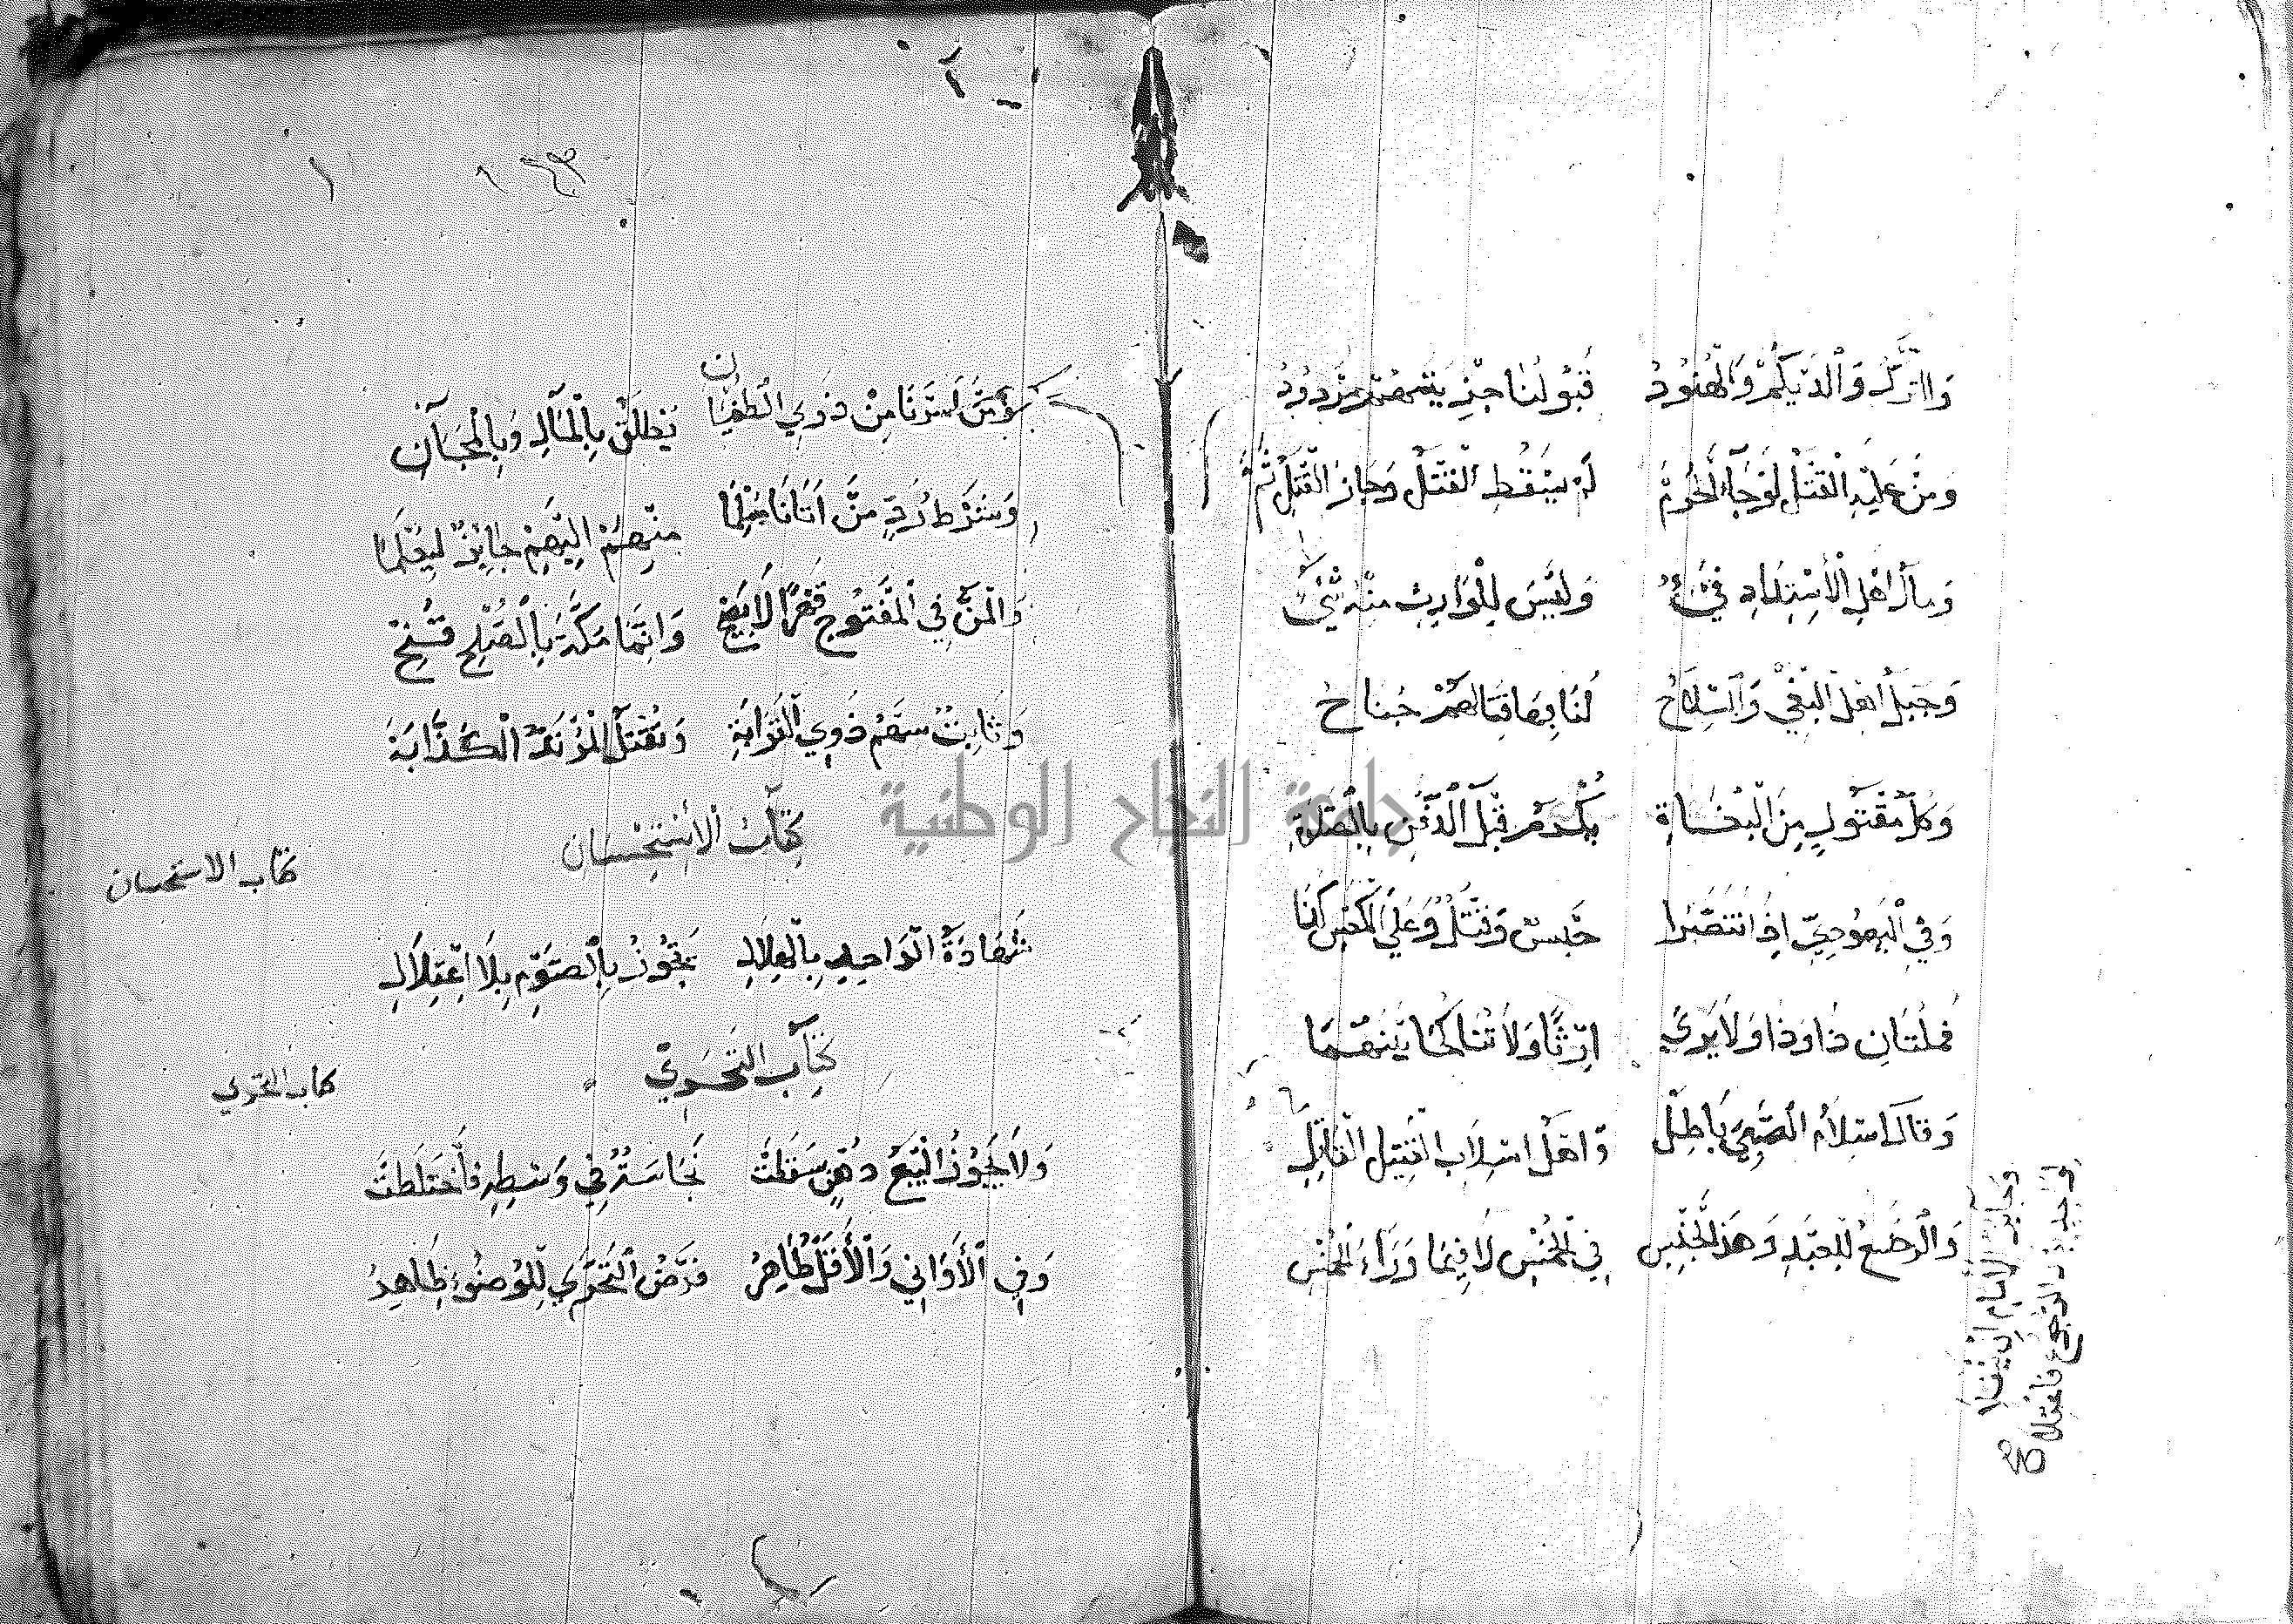 وَالتُّرْكُ وَالدَّيْلَمُ وَالْهُنُودُ قَبُولُنَا جِزْيَتَهُمْ مَرْدُودُ
وَمَنْ عَلَيْهِ الْقَتْلُ لَوْ جَاءَ الْحَرَمْ لَمْ يَسْقُطِ الْقَتْلُ وَجَازَ الْقَتْلُ ثَمّ
وَمَالُ أَهْلِ الْارْتِدَادِ فَيْءُ وَلَيْسَ لِلْوَارِثِ مِنْهُ شَيْءُ
وَخَيْلُ أَهْلِ الْبَغْيِ وَالسِّلَاحُ لَنَا بِهَا قِتَالُهُمْ جُنَاحُ
وَكُلُّ مَقْتُولٍ مِنَ الْبُغَاةِ يُكْرَمُ قَبْلَ الدَّفْنِ بِالصَّلَاةِ
وَفِي الْيَهُودِيِّ إِذَا تَنَصَّرَا حَبْسٌ وَقَتْلٌ وَعَلَى الْعَكْسِ
فَمِلَّتَانِ ذَا وَذَا وَلَا يَرَى إِرْثًا وَلَا تَنَاكُحًا بَيْنَهُمَا
وَقَالَ اسْلَامُ الصَّبِيِّ بَاطِلُ وَأَهْلُ أَسْلَابِ الْقَتِيلِ الْقَاتِلُ
وَالرَّضْخُ لِلْعَبْدِ وَهَذَا الْجِنْسِ فِي الْخُمْسِ لَا فِيمَا وَرَاءَ الْخُمْسِ
وَمَنْ أَسَرْنَا مِنْ ذَوِي الطُّغْيَانِ يُطْلَقُ بِالْمَالِ وَبِالْمَجَّانِ
وَشَرْطُ رَدِّ مَنْ أَتَانَا مُسْلِمَا مِنْهُمْ إِلَيْهِمْ جَائِزٌ لِيُعْلَمَا
وَالْمَنُّ فِي الْمَفْتُوحِ قَهْرًا لَا يَصِحّ وَإِنَّمَا مَكَّةُ بِالصُّلْحِ فُتِحْ
وَثَابِتٌ سَهْمُ ذَوِي الْقَرَابَةِ وَتُقْتَلُ الْمُرْتَدَّةُ الْكَذَّابَةُ
كِتَابُ الْاسْتِحْسَانِ
كتاب الاستحسان
شَهَادَةُ الْوَاحِدِ بِالْهِلَالِ تَجُوزُ بِالصَّوْمِ بِلَا اعْتِلَالِ
كِتَابُ التَّحَرِّي
كتاب التحري
وَلَا يَجُوزُ الْبَيْعُ دُهْنٍ سَقَطَتْ نَجَاسَةٌ فِي وَسْطِهِ فَاخْتَلَطَتْ
وَفِي الْأَوَانِي وَالْأَقَلُّ طَاهِرُ فَرْضُ التَّحَرِّي لِلْوُضُوءِ ظَاهِرُ
جامعة النجاح الوطنية